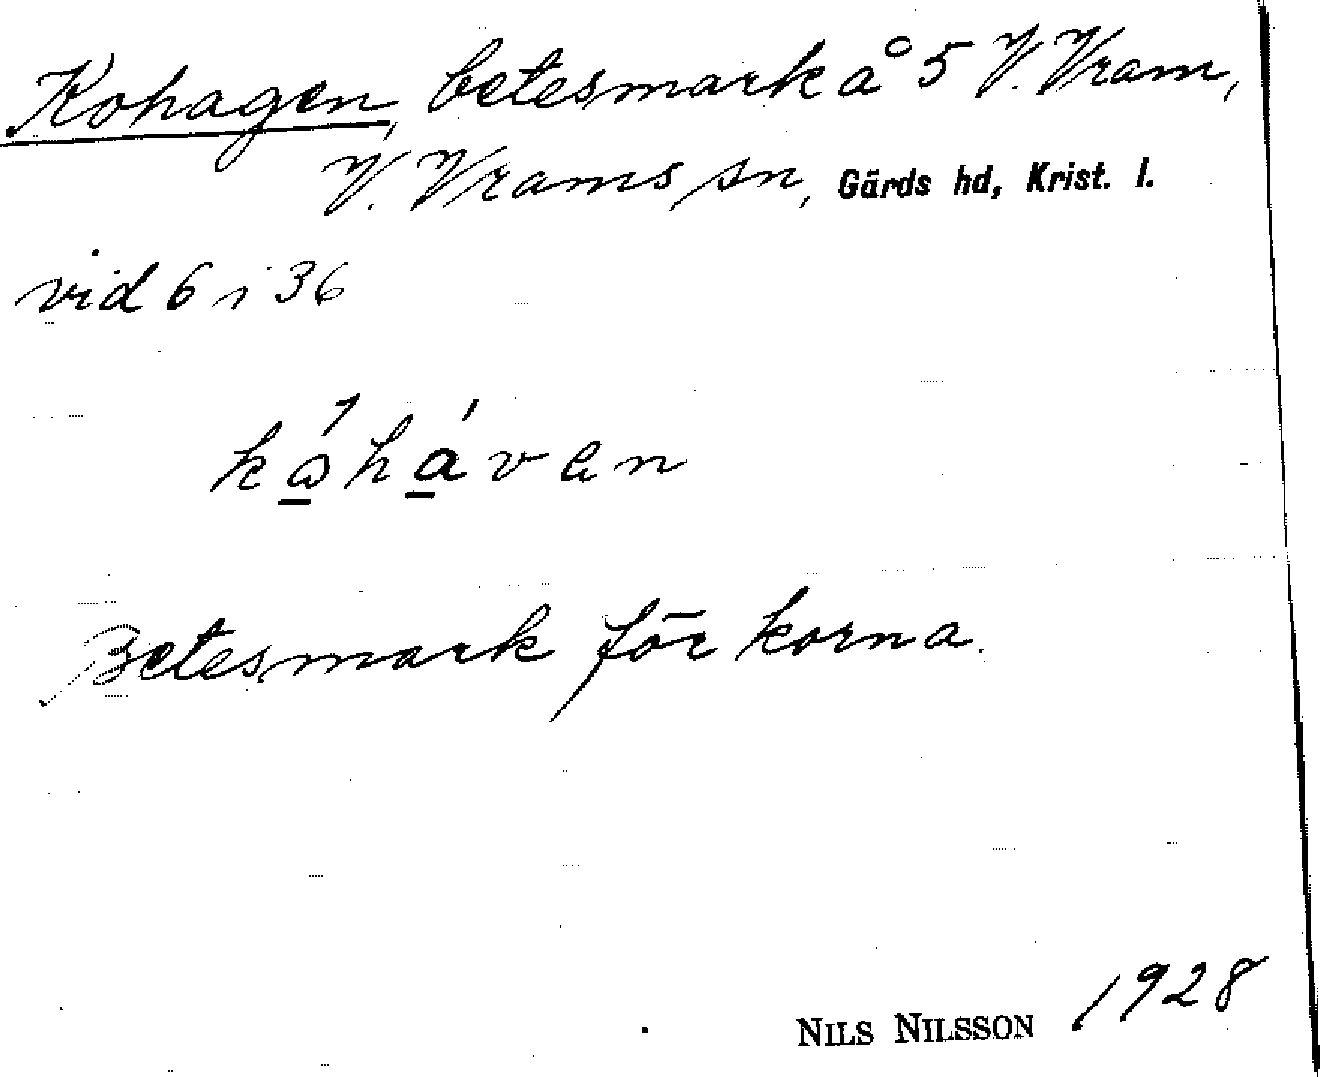 Kohagen, betesmark å 5 V. Vram,
V. Vrams sn, Gärds hd, Krist. l.
vid 6 i 36
kåhávan
Betesmark för korna.
NILS NILSSON 1928